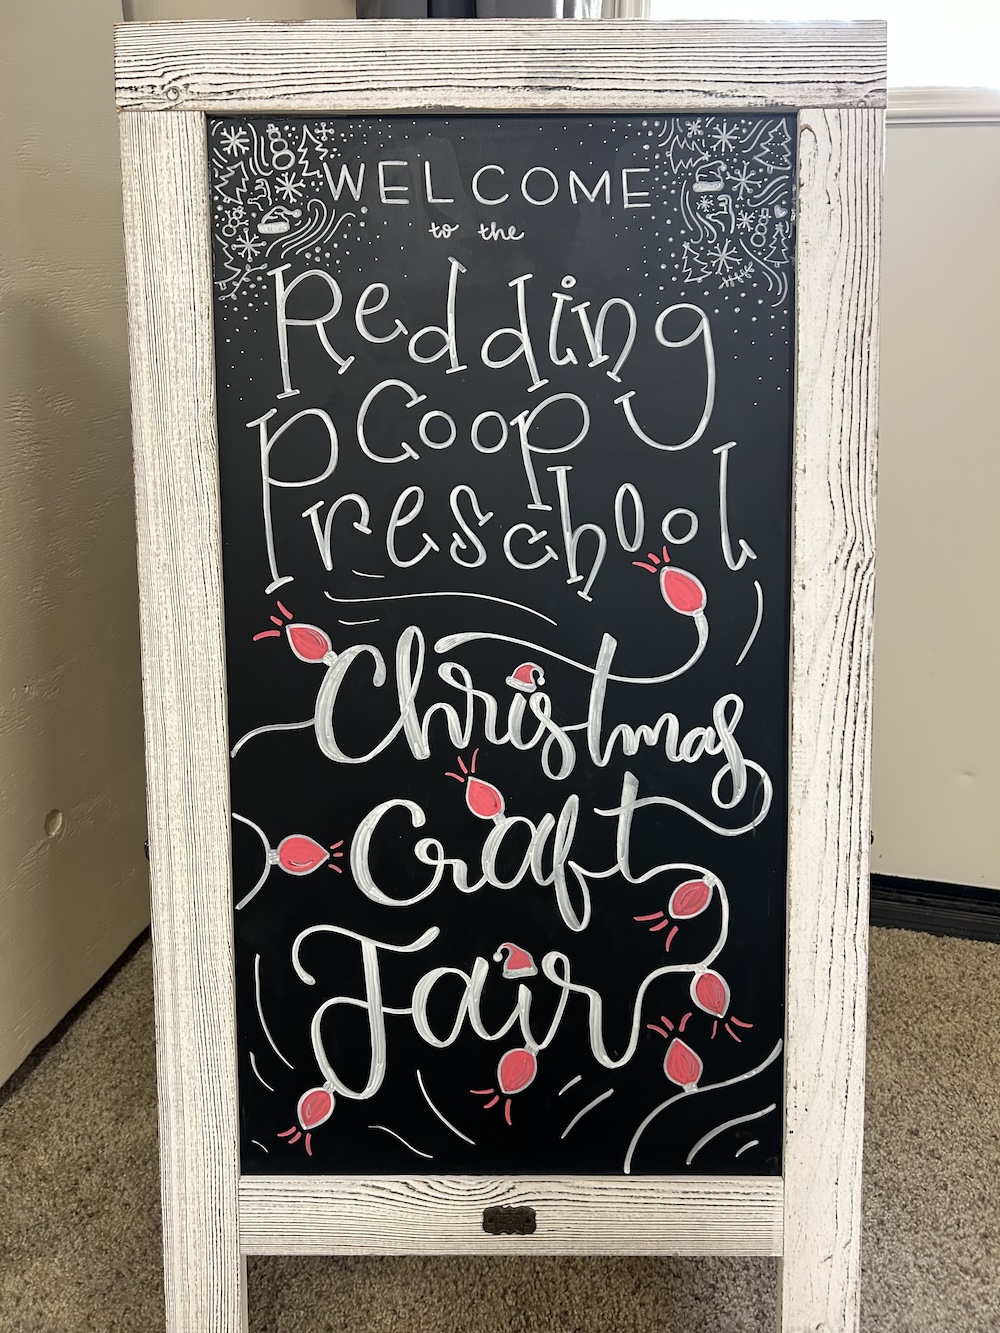 WELCOME
to the
Redding
Coop
Preschool
Christmas
Craft
Fair